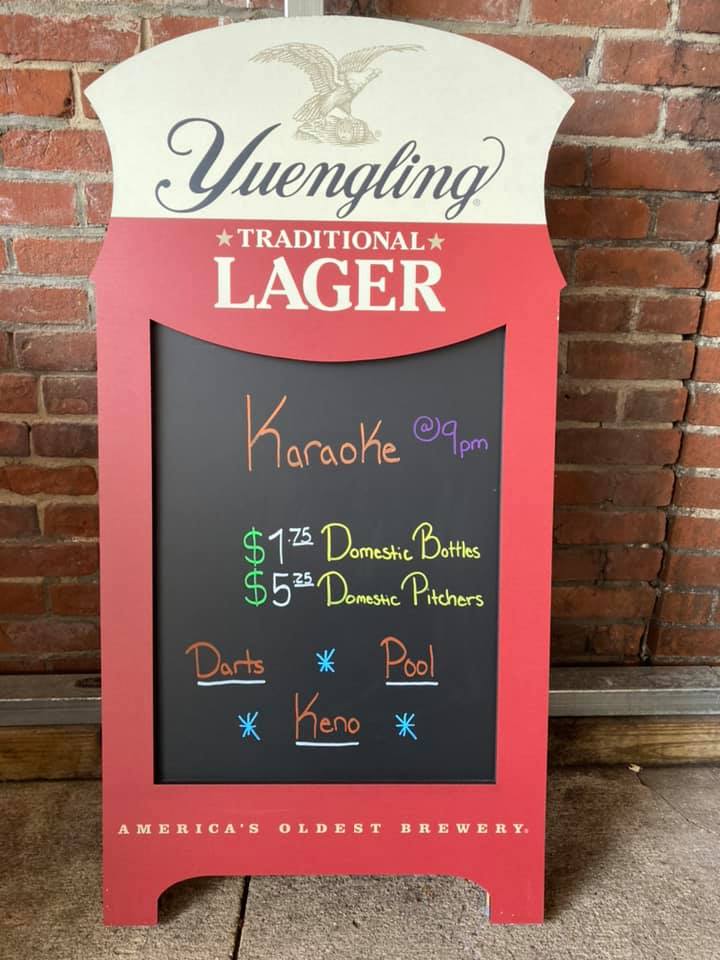 Yuengling
TRADITIONAL
LAGER
Karaoke @9pm
$1.75 Domestic Bottles
$5.25 Domestic Pitchers
Darts * Pool
* Keno *
AMERICA'S OLDEST BREWERY.